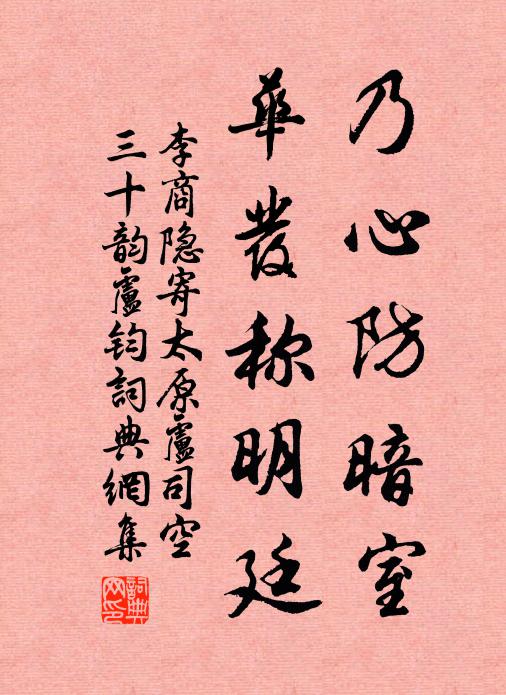 乃心防暗室
華發称明廷
李商隐寄太原盧司空
三十韵盧钧詞典網集
詞典網印